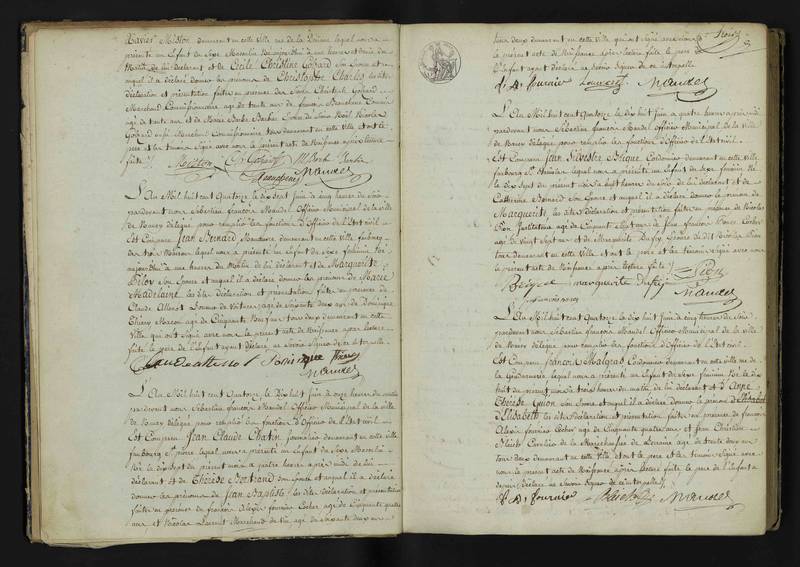 Xavier Mislon demeurant en cette Ville rue de la laquel nous a
présenté un Enfant du Sexe Masculin Né aujourd'hui à une heure et demie du
Matin de lui déclarant et de Cécile Christine Gohard son Epouse et
auquel il a déclaré donner les prénoms de Christophe Charles les dite
déclaration et présentation faites en présence des Sieurs Christophe Gohard
Marchand Commissionnaire agé de trente ans
agé de trente ans et de Marie Barbe Barbier Epouse du Sieur Noël Nicolas
Gohard aussi Marchand Commissionnaire tous demeurant en cette Ville et ont le
père et les témoins Signé avec nous le présent acte de Naissance après lecture
faite
Mislon Gohard M. Barb Barbier
Mandel
L'An Mil huit cent Quatorze le dix Sept Juin à cinq heures du Soir
pardevant nous Sébastien François Mandel Officier Municipal de la Ville
de Nancy délégué pour remplir les fonctions d'Officier de l'Etat Civil
Est Comparu Jean Bernard Manœuvre demeurant en cette Ville faubourg
des trois Maisons laquel nous a présenté un Enfant du Sexe féminin Né
aujourd'hui à une heure du Matin de lui déclarant et de Marguerite
Beloy son Epouse et auquel il a déclaré donner les prénoms de Marie
Madelaine les dite déclaration et présentation faites en présence de
Claude Allenot Loueur de Voitures agé de Soixante deux ans et Dominique
Thiery Maçon agé de Cinquante Neuf ans tous deux demeurant en cette
Ville qui ont Signé avec nous le présent acte de Naissance après lecture
faite le père de l'Enfant ayant déclaré ne Savoir Signer de ce interpellé
Claude allenot Dominique Thiery
Mandel
L'An Mil huit cent Quatorze le Dix huit Juin à onze heures du matin
pardevant nous Sébastien François Mandel Officier Municipal de la Ville
de Nancy délégué pour remplir les fonctions d'Officier de l'Etat Civil
Est Comparu Jean Claude Chatin Journalier demeurant en cette Ville
faubourg St pierre laquel nous a présenté un Enfant du Sexe Masculin
Né le dix Sept du présent mois à quatre heures après midi de lui
déclarant et de Thérèse Bertrand son Epouse et auquel il a déclaré
donner les prénoms de Jean Baptiste les dite déclaration et présentation
faites en présence de François Alexis fournier Cocher agé de Cinquante quatre
ans et Nicolas Laurent Marchand de Vin agé de Soixante deux ans
tous deux demeurant en cette Ville qui ont Signé avec nous
le présent acte de Naissance après lecture faite le père de
l'Enfant ayant déclaré ne Savoir Signer de ce interpellé
f. A. fournier Laurent Mandel
L'An Mil huit cent Quatorze le dix huit Juin à quatre heures après midi
pardevant nous Sébastien françois Mandel Officier Municipal de la Ville
de Nancy délégué pour remplir les fonctions d'Officier de l'Etat Civil
Est Comparu Jean Silvestre Cordonnier demeurant en cette Ville
faubourg St Stanislas laquel nous a présenté un Enfant du Sexe féminin Né
le dix Sept du présent mois à huit heures du Soir de lui déclarant et de
Catherine Bernard Son Epouse et auquel il a déclaré donner le prénom de
Marguerite les dite déclaration et présentation faites en présence de Nicolas
Pion Instituteur agé de Cinquante Sept ans de Jean françois Cocher
agé de Vingt Sept ans et de Marguerite Dufey Epouse du dit Nicolas Pion
tous demeurant en cette Ville et ont le père et les témoins Signé avec nous
le présent acte de Naissance après lecture faite
Pion
marguerite Dufey
Mandel
L'An Mil huit cent Quatorze le dix huit Juin à cinq heures du Soir
pardevant nous Sébastien françois Mandel Officier Municipal de la Ville
de Nancy délégué pour remplir les fonctions d'Officier de l'Etat Civil
Est Comparu françois Malgras Cordonnier demeurant en cette Ville rue de
la Gendarmerie laquel nous a présenté un Enfant du Sexe féminin Né le dix
huit du présent mois à trois heures du matin de lui déclarant et d'Anne
Thérèse Guion Son Epouse et auquel il a déclaré donner le prénom d'Elisabeth
d'Elisabeth les dite déclaration et présentation faites en présence de françois
Alexis fournier Cocher agé de Cinquante quatre ans et Jean Christian
de la Maréchaussée de Lorraine agé de trente deux ans
tous deux demeurant en cette Ville et ont le père et les témoins Signé avec
nous le présent acte de Naissance après lecture faite le père de l'Enfant a
déclaré ne Savoir Signer de ce interpellé
f. A. fournier Mandel